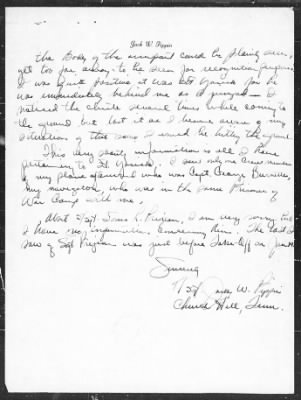 Jack W. Pippin
the body of the occupant could be plainly seen,
yet too far away to be seen for recognition purposes
I was quite positive it was Sgt for he
was immediately behind me as I jumped — I
noticed the chute several times while coming to
the ground but lost it as I became aware of my
situation of the as I neared the hitting the ground.
This very scanty information is all I have
pertaining to Sgt. I seen only one crew member
of my plane afterward who was Capt. George
my navigator, who was in the same Prisoner of
War Camp with me.
About S/Sgt Louis L. I am very sorry but
I have no information concerning him. The last I
saw of Sgt was just before take-off on
Sincerely
T/Sgt. W. Pippin
Church Hill, Tenn.